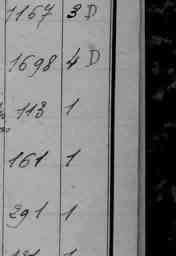 1167 3 D
1698 4 D
113 1
161 1
291 1